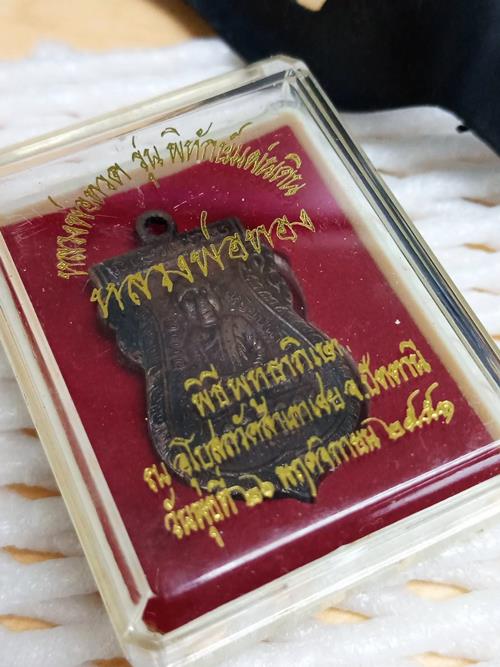 หลวงพ่อทวด รุ่น พิทักษ์แผ่นดิน
หลวงพ่อทอง
พิธีพุทธาภิเษก
ณ อุโบสถวัดสำเภาเชย จ.ปัตตานี
วันพุธที่ ๒๖ พฤศจิกายน ๒๕๕๑